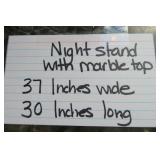 Night stand
with marble top
37 Inches wide
30 Inches long